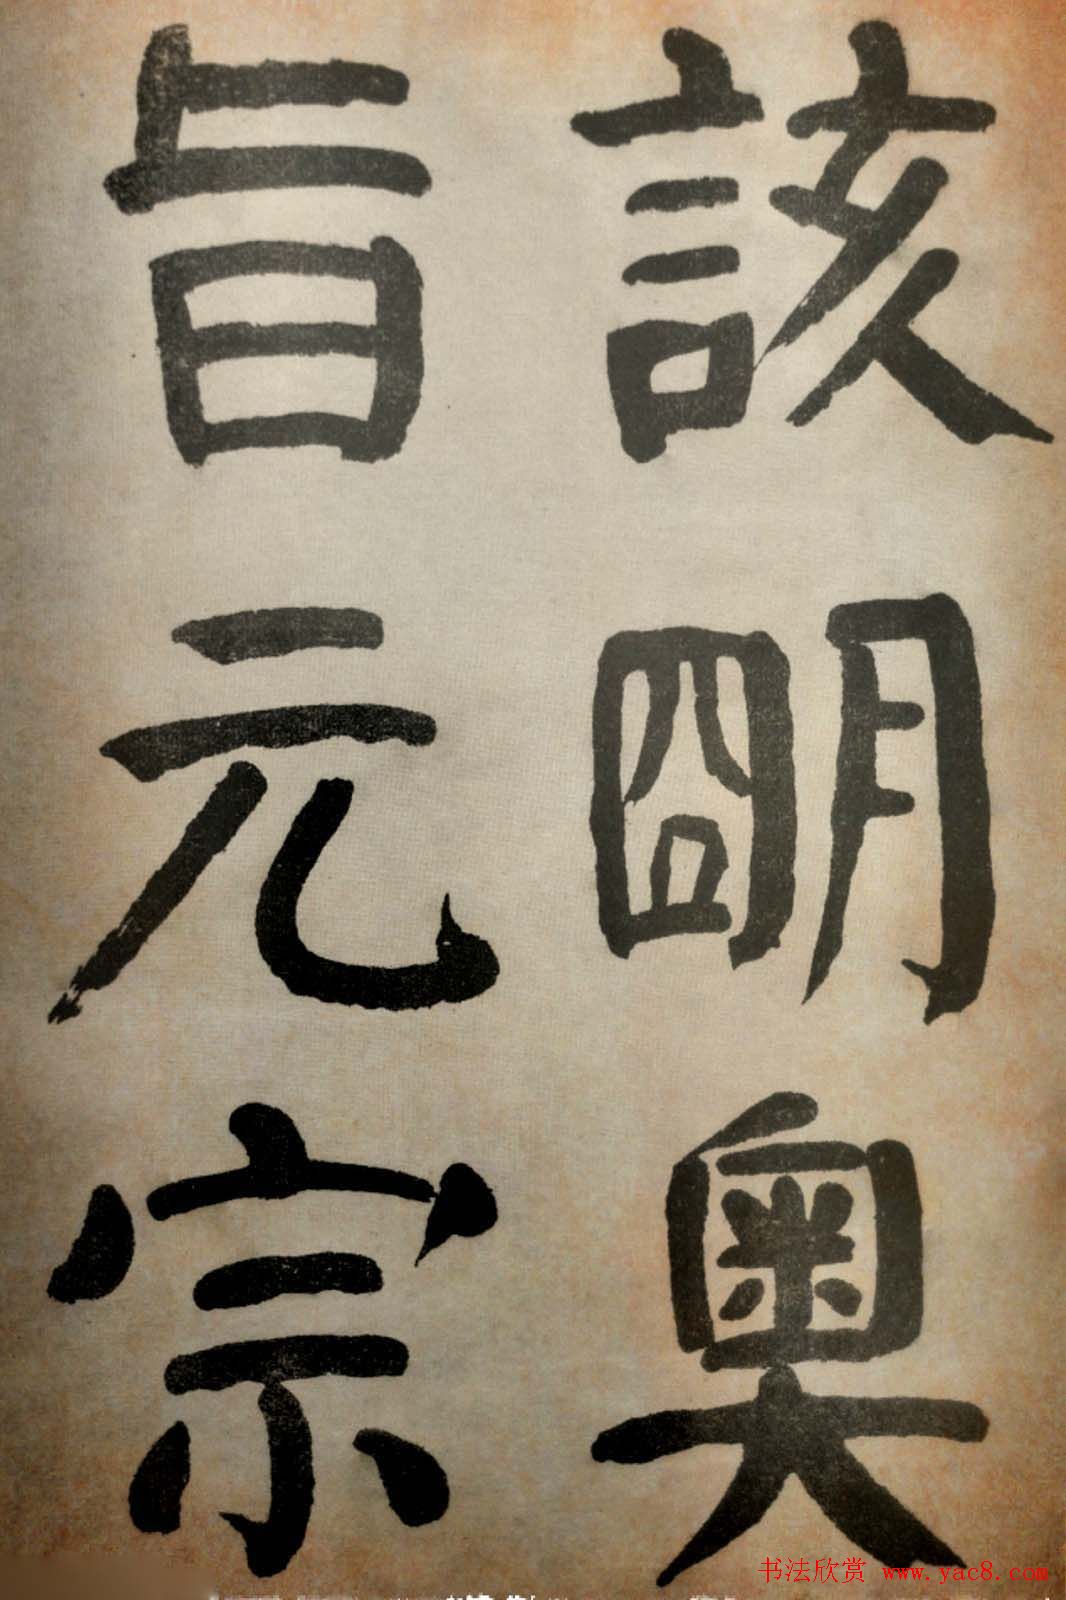 該朙奧
旨元宗
书法欣赏 www.yac8.com